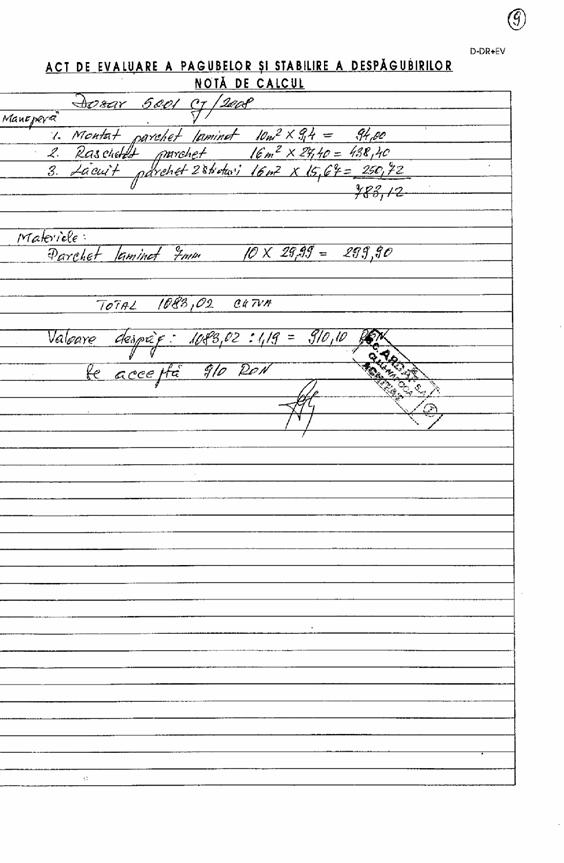 9
D-DR+EV
ACT DE EVALUARE A PAGUBELOR ȘI STABILIRE A DESPĂGUBIRILOR
NOTĂ DE CALCUL
Dosar 5001 CJ/2008
Manoperă
1. Montat parchet laminat 10m² x 9,4 = 94,00
2. Raschetat parchet 16m² x 27,40 = 438,40
3. Lăcuit parchet 2 straturi 16m² x 15,67 = 250,72
783,12
Materiale:
Parchet laminat 7mm 10 x 29,99 = 299,90
TOTAL 1083,02 cu TVA
Valoare despăg: 1083,02 : 1,19 = 910,10 RON
Se acceptă 910 RON
S.C. ARDAF S.A.
CLUJ-NAPOCA
ACHITAT